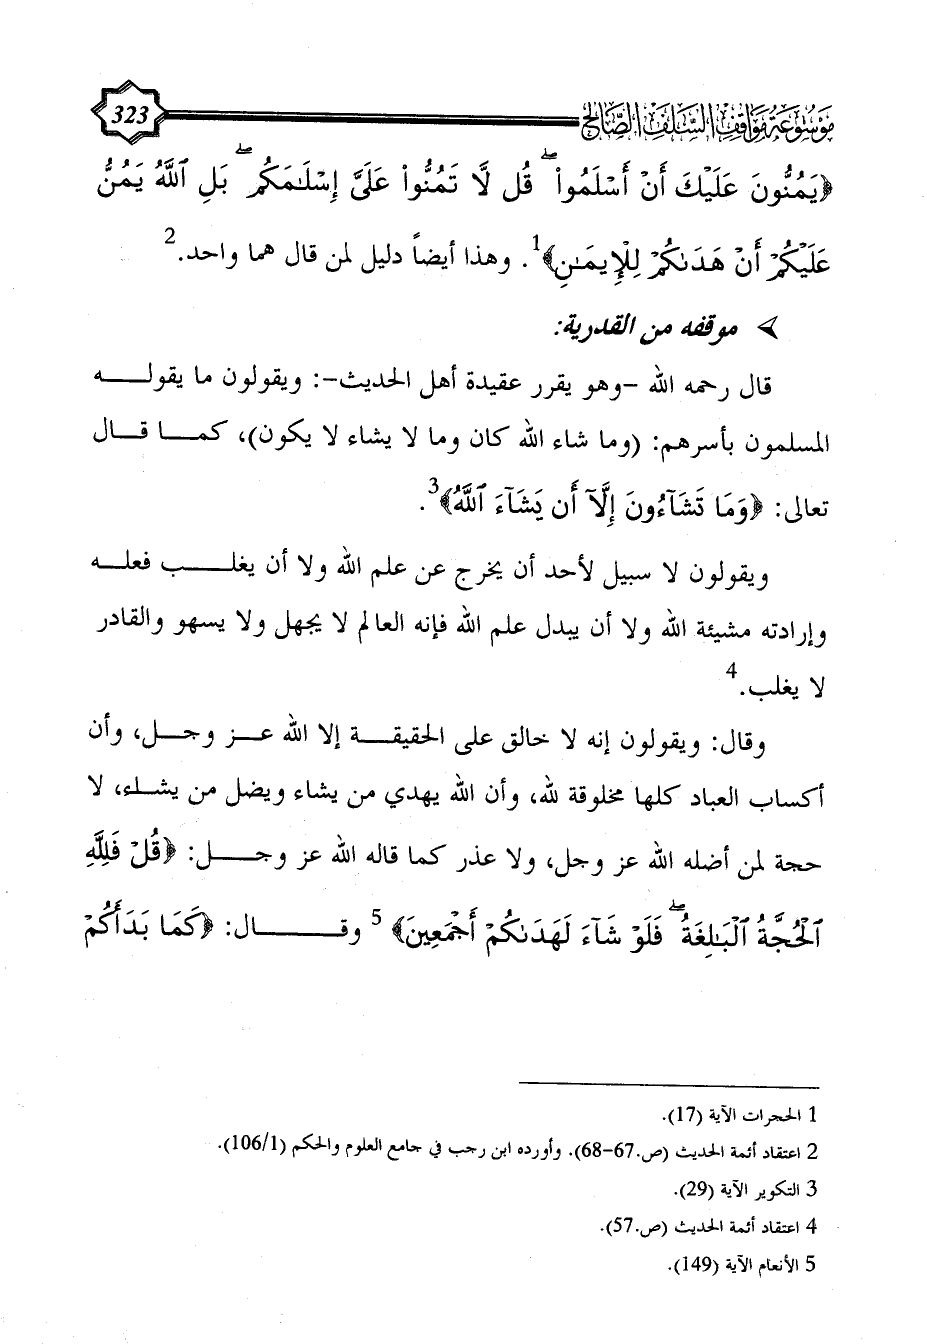 موسوعة مواقف السلف الصالح 323
﴿يَمُنُّونَ عَلَيْكَ أَنْ أَسْلَمُوا۟ ۖ قُل لَّا تَمُنُّوا۟ عَلَىَّ إِسْلَـٰمَكُم ۖ بَلِ ٱللَّهُ يَمُنُّ
عَلَيْكُمْ أَنْ هَدَىٰكُمْ لِلْإِيمَـٰنِ﴾1. وهذا أيضاً دليل لمن قال هما واحد.2
➢ موقفه من القدرية:
قال رحمه الله -وهو يقرر عقيدة أهل الحديث-: ويقولون ما يقولـــه
المسلمون بأسرهم: (وما شاء الله كان وما لا يشاء لا يكون)، كمـــا قـــال
تعالى: ﴿وَمَا تَشَآءُونَ إِلَّآ أَن يَشَآءَ ٱللَّهُ﴾3.
ويقولون لا سبيل لأحد أن يخرج عن علم الله ولا أن يغلـــب فعلـــه
وإرادته مشيئة الله ولا أن يبدل علم الله فإنه العالم لا يجهل ولا يسهو والقادر
لا يغلب.4
وقال: ويقولون إنه لا خالق على الحقيقـــة إلا الله عـــز وجـــل، وأن
أكساب العباد كلها مخلوقة لله، وأن الله يهدي من يشاء ويضل من يشـاء، لا
حجة لمن أضله الله عز وجل، ولا عذر كما قاله الله عز وجـــل: ﴿قُلْ فَلِلَّهِ
ٱلْحُجَّةُ ٱلْبَـٰلِغَةُ ۖ فَلَوْ شَآءَ لَهَدَىٰكُمْ أَجْمَعِينَ﴾5 وقـــــال: ﴿كَمَا بَدَأَكُمْ
1 الحجرات الآية (17).
2 اعتقاد أئمة الحديث (ص.67-68). وأورده ابن رجب في جامع العلوم والحكم (106/1).
3 التكوير الآية (29).
4 اعتقاد أئمة الحديث (ص.57).
5 الأنعام الآية (149).